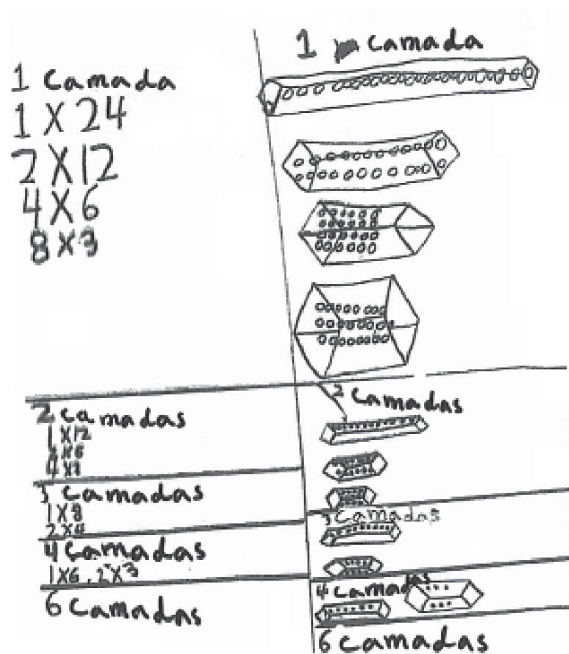 1 Camada
1 X 24
2 X 12
4 X 6
8 X 3
2 Camadas
1 X 12
4 X 3
3 Camadas
1 X 8
2 X 4
4 Camadas
1 X 6, 2 X 3
6 Camadas
1 camada
2 Camadas
3 Camadas
4 Camadas
6 Camadas